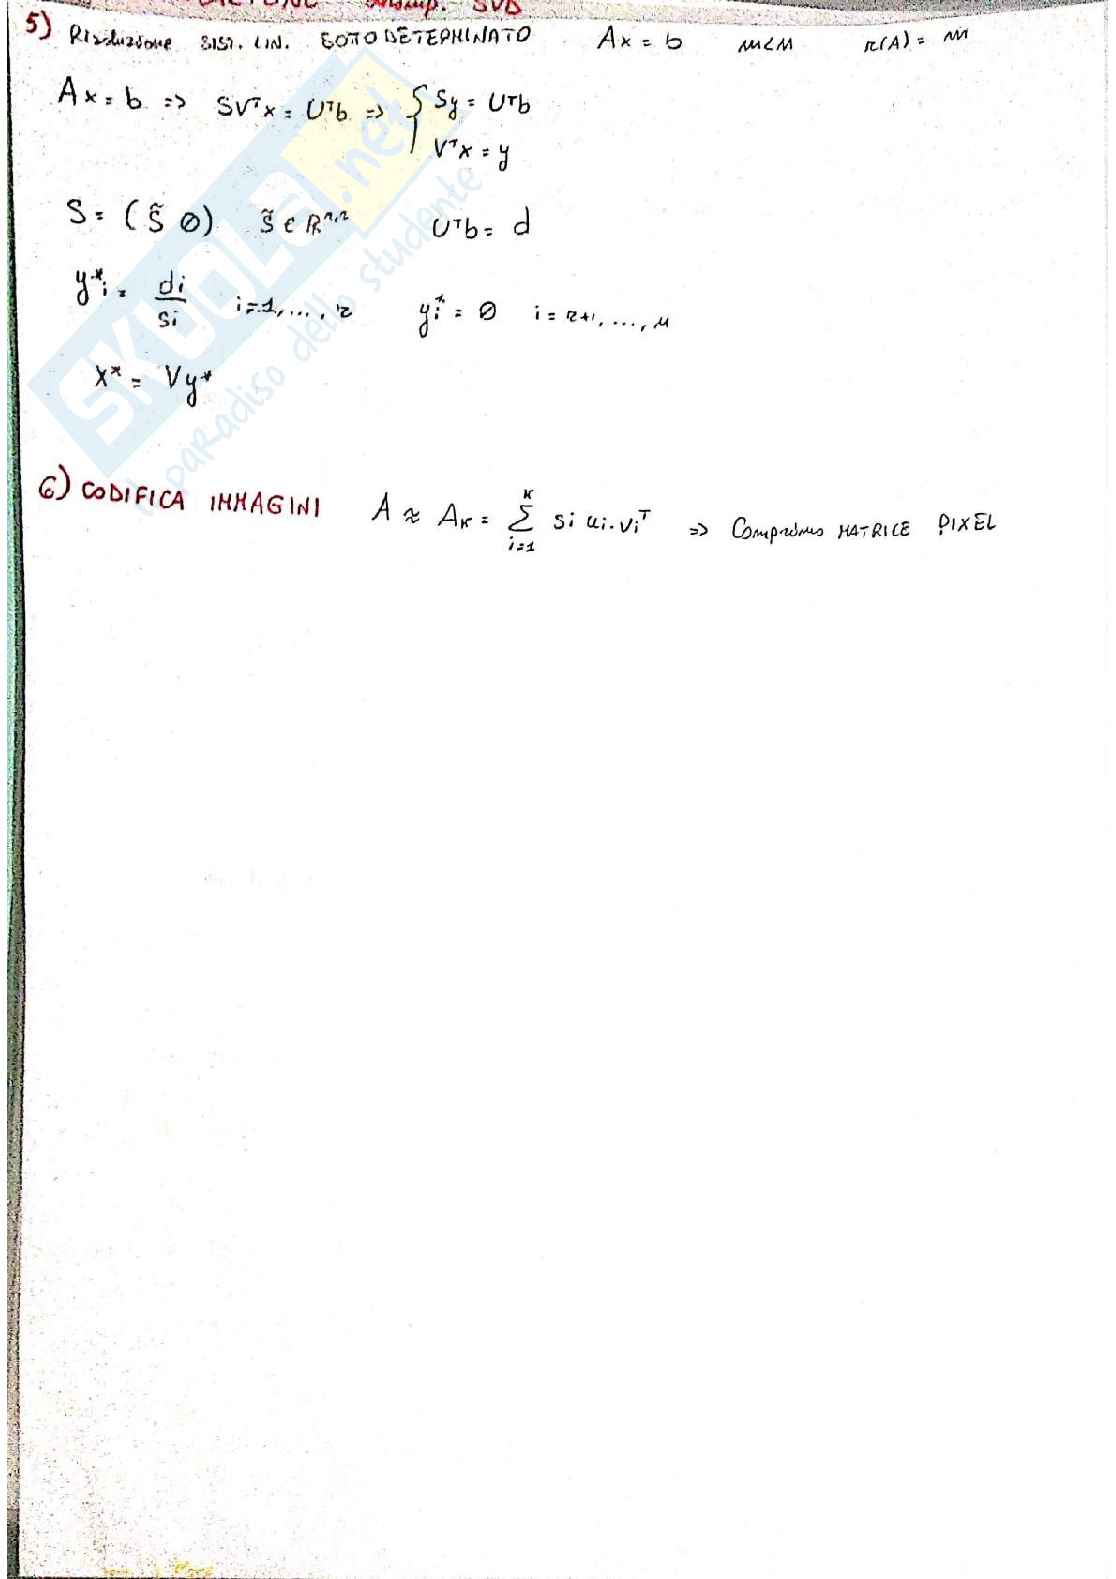 SVD
5) Risoluzione SIST. LIN. SOTODETERMINATO Ax = b m<n r(A) = m
Ax = b => SVᵀx = Uᵀb => { Sy = Uᵀb
Vᵀx = y
S = (S̃ 0) S̃ ∈ ℝʳ,ʳ Uᵀb = d
y*i = di/si i=1,...,r yi* = 0 i = r+1,...,n
x* = Vy*
6) CODIFICA IMMAGINI A ≈ Aₖ = Σᵢ₌₁ᴷ si ui·viᵀ => Comprimo MATRICE PIXEL
SKUOLA.net
il paradiso dello studente